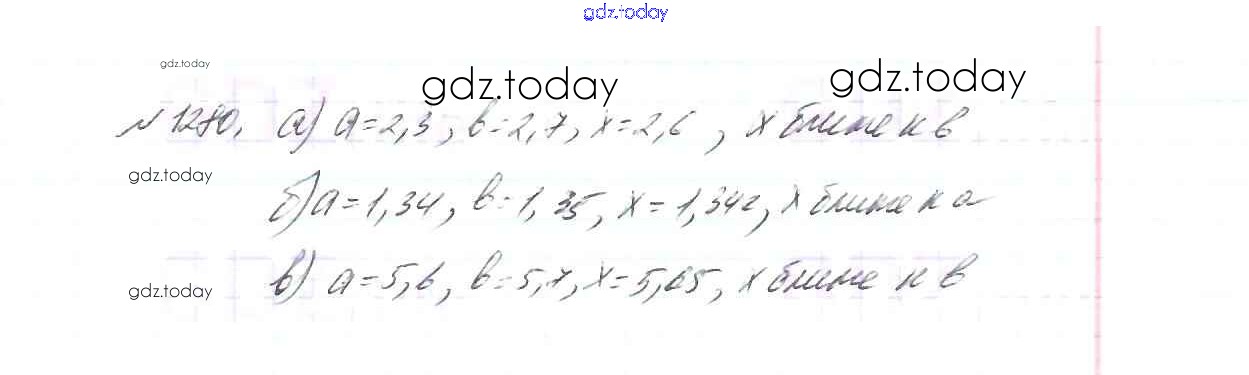 gdz.today
gdz.today
gdz.today
gdz.today
№ 1280. а) a=2,3, b=2,7, x=2,6, x ближе к b
gdz.today
б) a=1,34, b=1,35, x=1,342, x ближе к a
в) a=5,6, b=5,7, x=5,65, x ближе к b
gdz.today